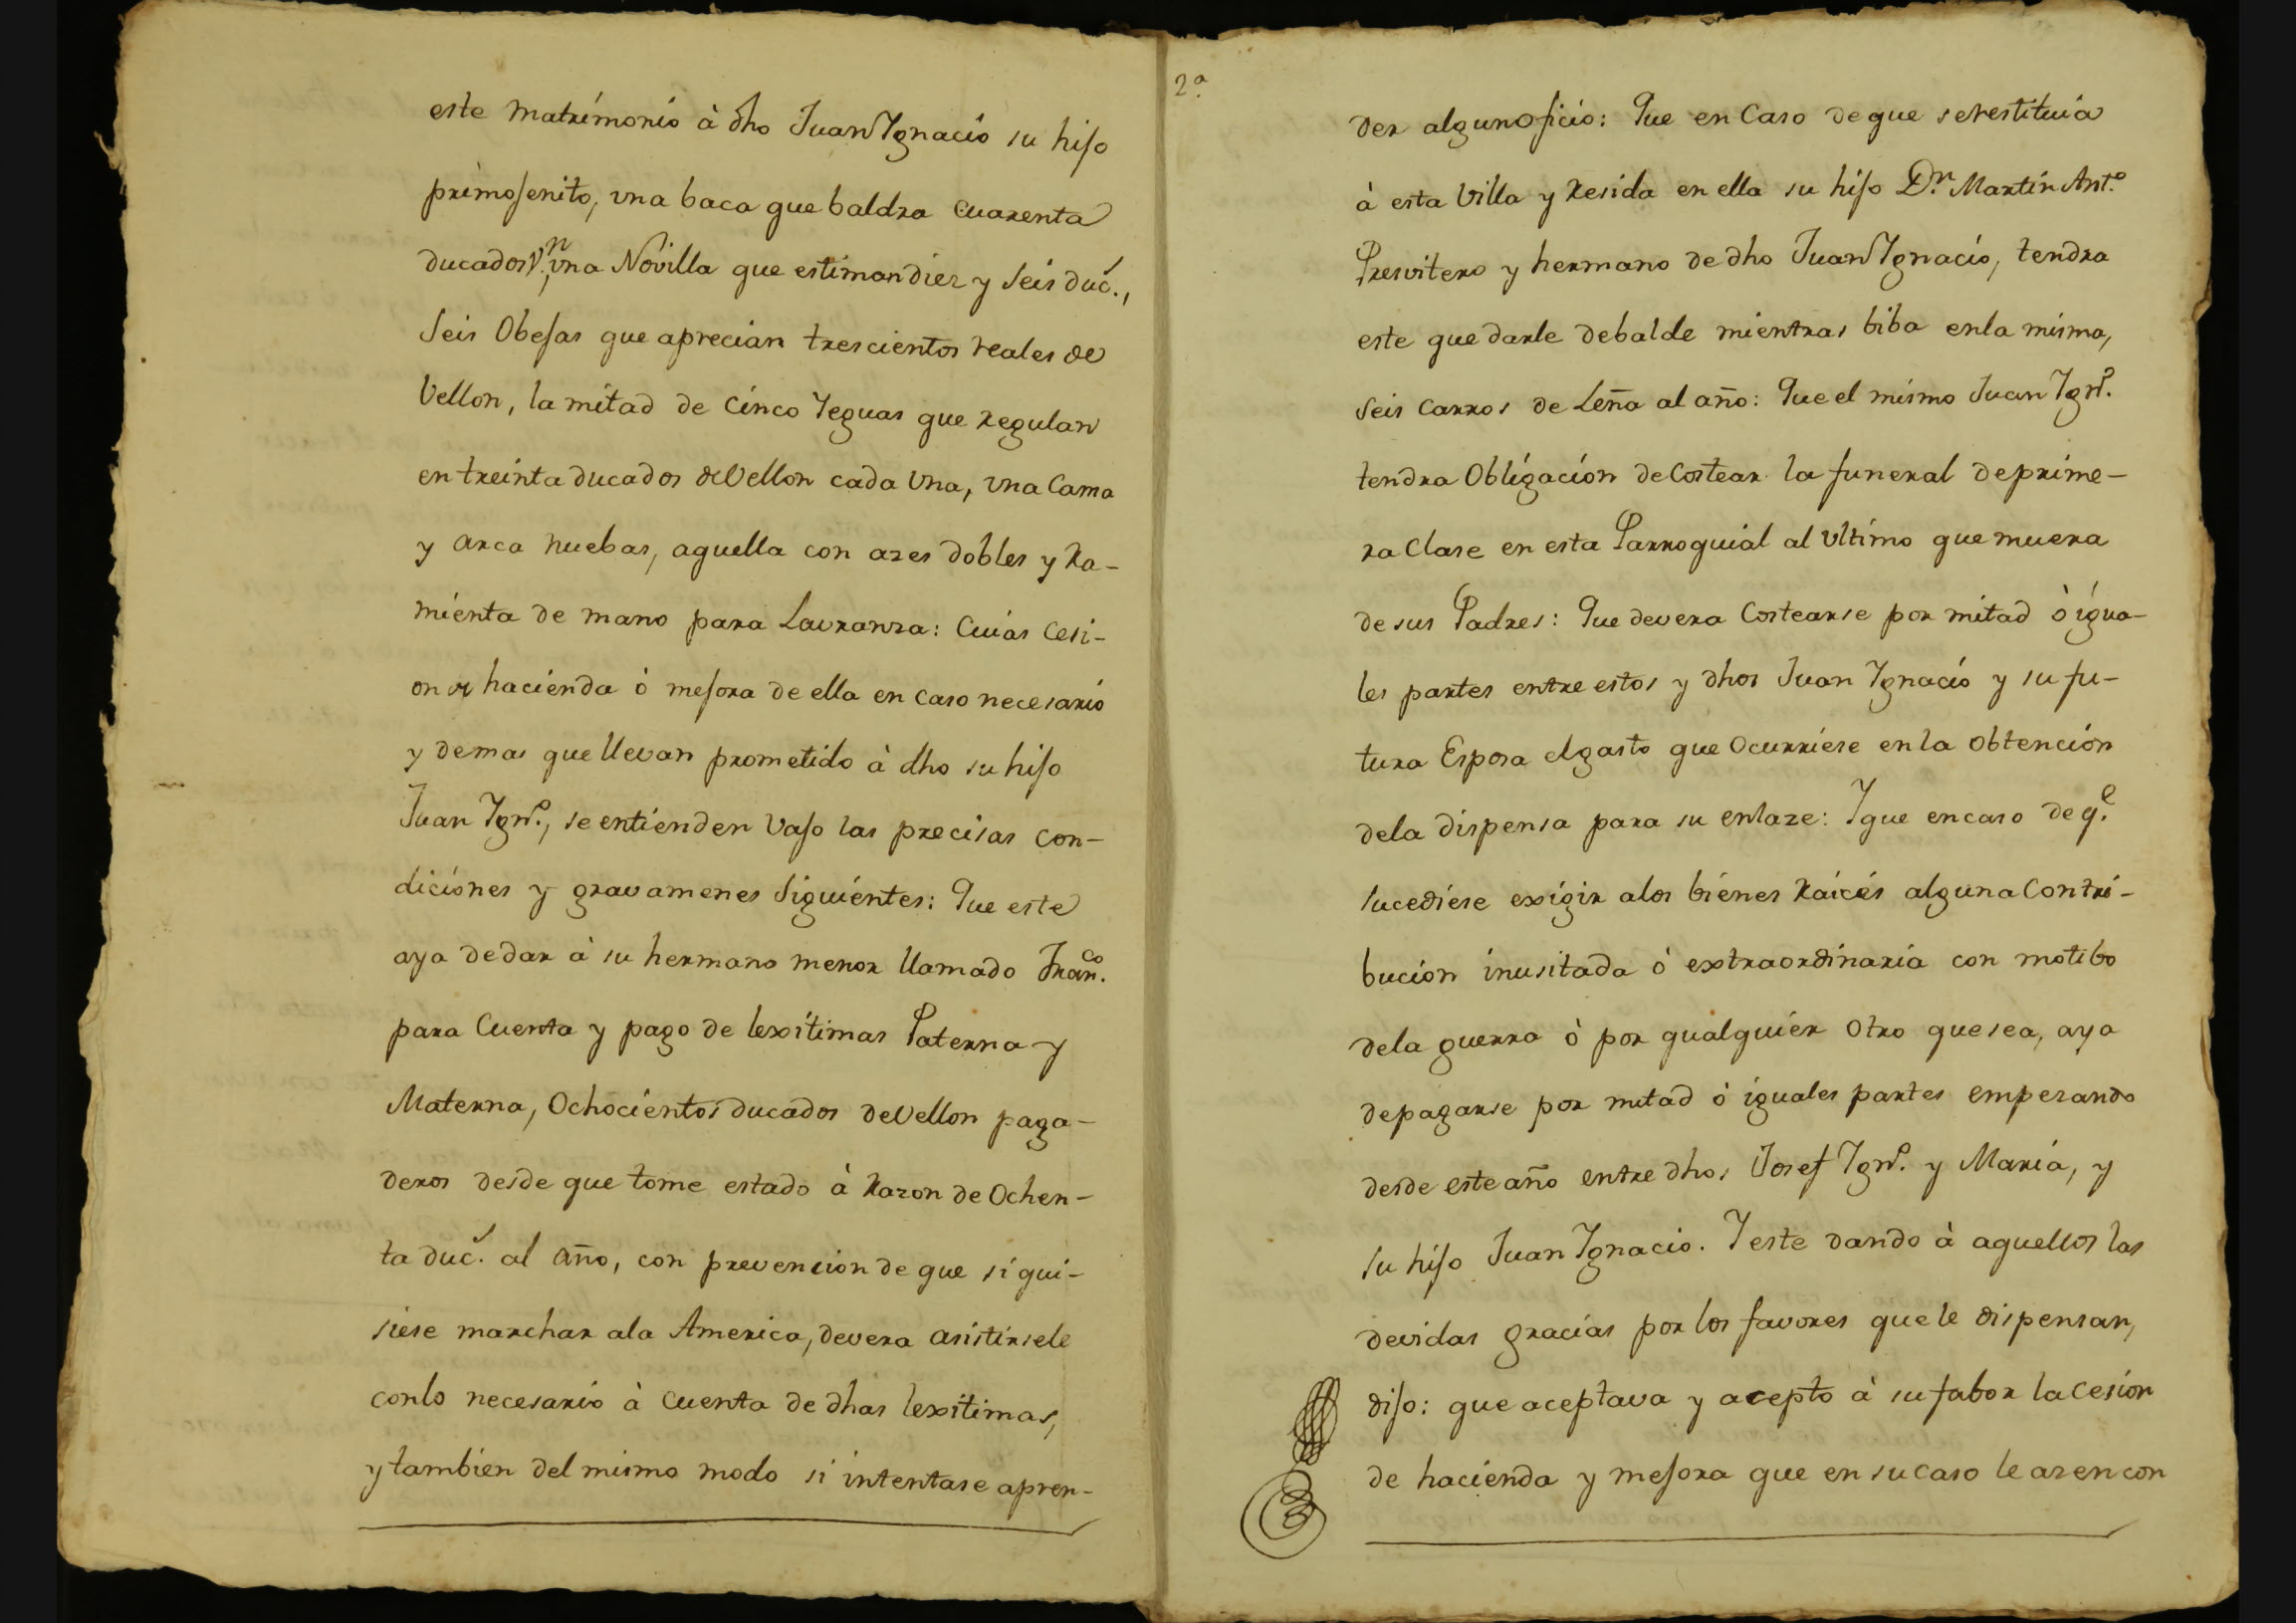 este Matrimonio à dho Juan Ignacio su hijo
primojenito, vna baca que baldra cuarenta
ducados Vn., vna Novilla que estiman diez y seis duc.s,
seis Obejas que aprecian trescientos reales de
Vellon, la mitad de cinco Yeguas que regulan
en treinta ducados de Vellon cada vna, vna Cama
y arca nuebas, aquella con azes dobles y ra-
mienta de mano para Lavranza: Cuias Cesi-
on de hacienda ò mejora de ella en caso necesario
y demas que llevan prometido à dho su hijo
Juan Ygn.o, se entienden vajo las precisas con-
diciones y gravamenes siguientes: Que este
aya de dar à su hermano menor llamado Fran.co
para Cuenta y pago de lexitimas Paterna y
Materna, Ochocientos ducados de Vellon paga-
deros desde que tome estado à razon de Ochen-
ta duc.s al año, con prevencion de que si qui-
siese marchar ala America, devera asistirsele
conlo necesario à cuenta de dhas lexitimas,
y tambien del mismo modo si intentase apren-
2.a
der algun oficio: Que en Caso de que se restituia
à esta Villa y resida en ella su hijo D.n Martin Ant.o
Presvitero y hermano de dho Juan Ygnacio, tendra
este que darle debalde mientras biba enla misma,
seis carros de Leña al año: Que el mismo Juan Ygn.o
tendra Obligación de Costear la funeral de prime-
ra Clase en esta Parroquial al Vltimo que muera
de sus Padres: Que devera Costearse por mitad ò igua-
les partes entre estos y dhos Juan Ygnacio y su fu-
tura Esposa el gasto que Ocurriese en la obtención
dela dispensa para su enlaze: Y que en caso de q.e
sucediese exigir alos bienes raices alguna Contri-
bución inusitada ò extraordinaria con motibo
dela guerra ò por qualquier otro que sea, aya
de pagarse por mitad ò iguales partes empezando
desde este año entre dhos Josef Ygn.o y Maria, y
su hijo Juan Ygnacio. Y este dando à aquellos las
devidas gracias por los favores que le dispensan,
dijo: que aceptava y acepto à su fabor la Cesion
de hacienda y mejora que en su caso le azen con